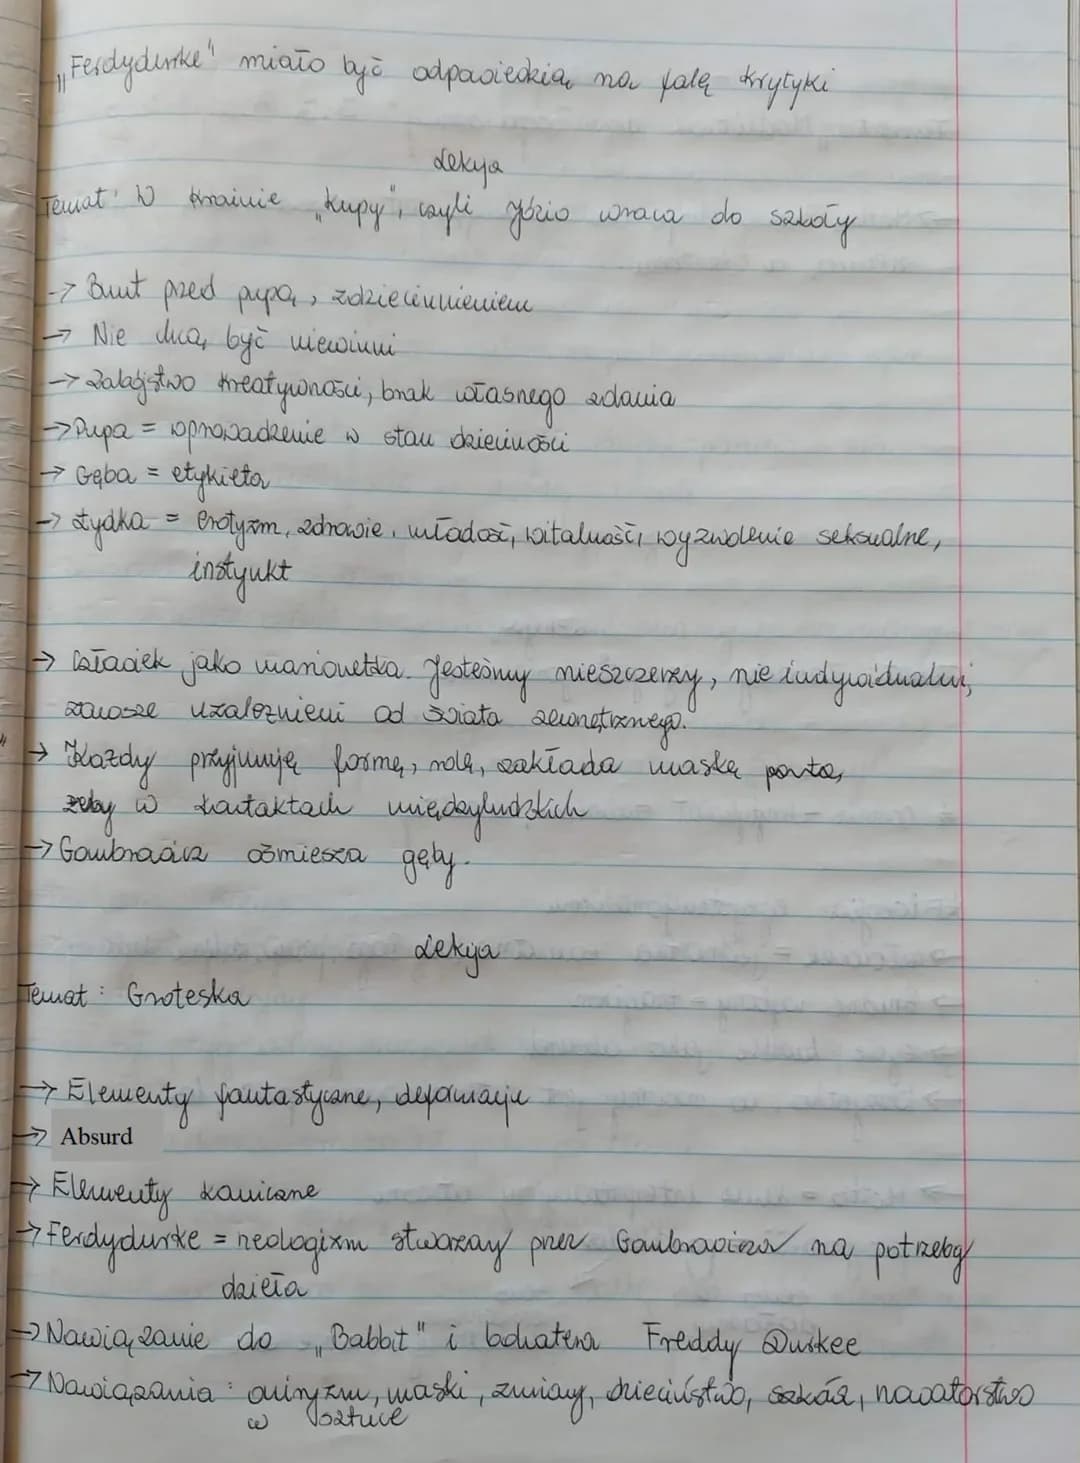 „Ferdydurke" miało być odpowiedzią na falę krytyki
Lekcja
Temat: W krainie „kupy", czyli Józio wraca do szkoły
-> Bunt przed pupą, zdziecinnieniem
-> Nie chcą być niewinni
-> Zabójstwo kreatywności, brak własnego zdania
-> Pupa = wprowadzenie w stan dziecinności
-> Gęba = etykieta
-> Łydka = erotyzm, zdrowie, młodość, witalność, wyzwolenie seksualne,
instynkt
-> Człowiek jako marionetka. Jesteśmy nieszczerzy, nie indywidualni,
zawsze uzależnieni od świata zewnętrznego.
-> Każdy przyjmuję formę, rolę, zakłada maskę pozta,
żeby w kontaktach międzyludzkich
-> Gombrowicz ośmiesza gęby.
Lekcja
Temat: Groteska
-> Elementy fantastyczne, deformacje
-> Absurd
-> Elementy komiczne
-> Ferdydurke = neologizm stworzony przez Gombrowicza na potrzeby
dzieła
-> Nawiązanie do „Babbit" i bohatera Freddy Durkee
-> Nawiązania: maski, zmiany, dzieciństwo, nowatorstwo
w sztuce